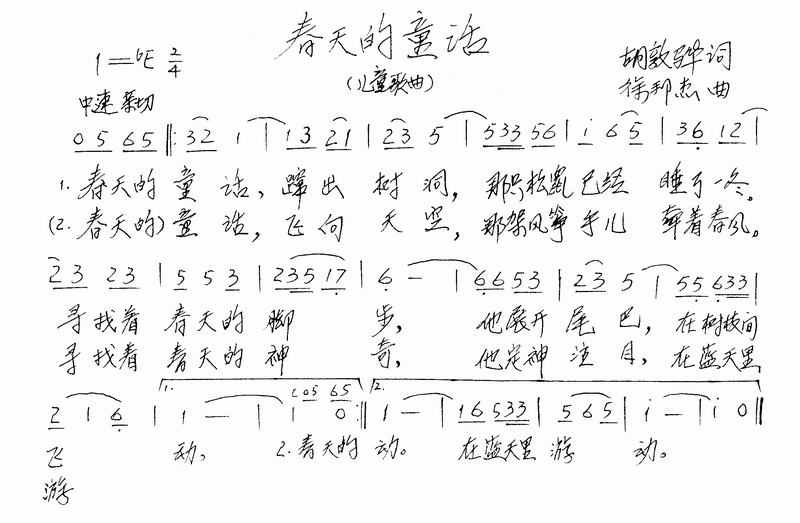 春天的童话
1=♭E 2/4
(儿童歌曲)
胡敦骅 词
徐邦杰 曲
中速 亲切
0 5 6 5 ‖: 3 2 1 | 1 3 2 1 | 2 3 5 | 5 3 3 5 6 | i 6 5 | 3 6 1 2 |
1. 春天的 童 话, 蹿 出 树 洞, 那只松鼠 已经 睡了一冬。
(2. 春天的) 童 话, 飞 向 天 空, 那架风筝 手儿 牵着春风。
2 3 2 3 | 5 5 3 | 2 3 5 1 7 | 6 — | 6 6 5 3 | 2 3 5 | 5 5 6 3 3 |
寻找着 春天的 脚 步, 他展开 尾 巴, 在树枝间
寻找着 春天的 神 奇, 他定神 注 目, 在蓝天里
1. (0 5 6 5 2.
2 1 6 | 1 — | 1 0 :‖ 1 — | 1 6 5 3 3 | 5 6 5 | i — | i 0 ‖
飞 动。 2. 春天的 动。 在蓝天里 游 动。
游